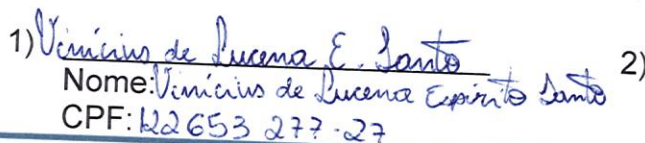 1) Vinícius de Lucena E. Santo 2)
Nome: Vinícius de Lucena Espirito Santo
CPF: 122653 277-27